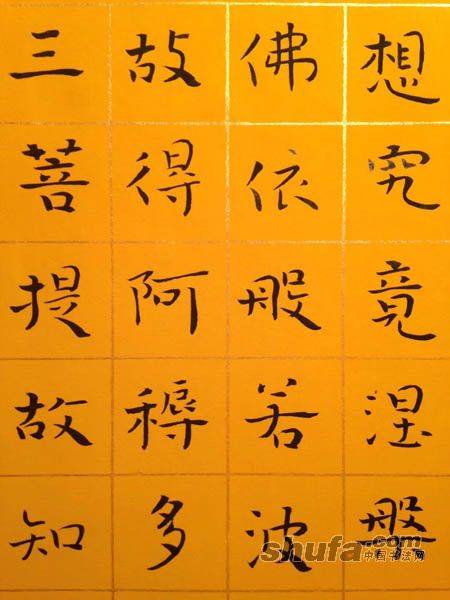 想究竟涅槃
佛依般若波
故得阿耨多
三菩提故知
shufa.com
中国书法网